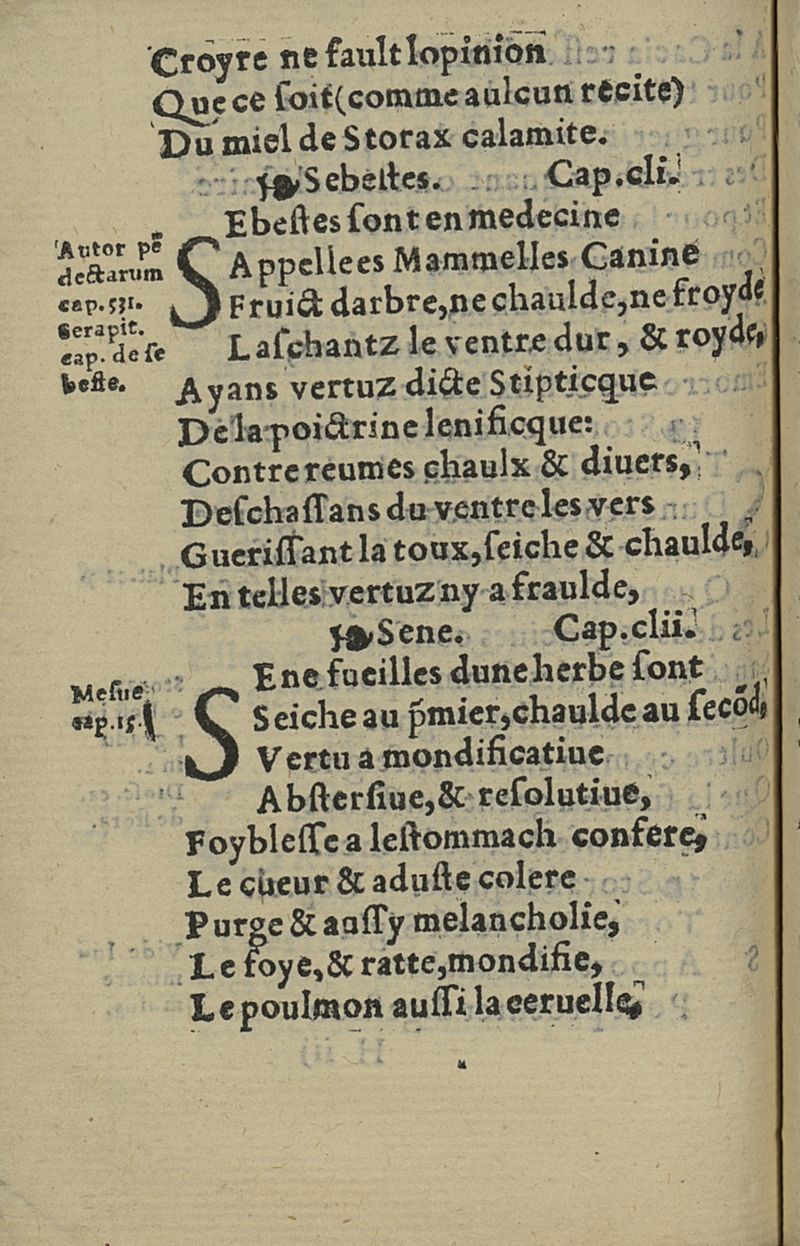 Croyre ne fault lopinion
Que ce soit (comme aulcun recite)
Du miel de Storax calamite.
Sebestes. Cap.cli.
SEbestes sont en medecine
Appellees Mammelles Canine
Fruict darbre, ne chaulde, ne froyde
Laschantz le ventre dur, & royde,
Ayans vertuz dicte Stipticque
De la poictrine lenificque:
Contre reumes chaulx & diuers,
Deschassans du ventre les vers
Guerissant la toux, seiche & chaulde,
En telles vertuz ny a fraulde,
Autor pē
dectarum
cap.531.
Serapit.
cap. de se
beste.
Sene. Cap.clii.
SEne fueilles dune herbe sont
Seiche au p̄mier, chaulde au secōd,
Vertu a mondificatiue
Abstersiue, & resolutiue,
Foyblesse a lestommach confere,
Le cueur & aduste colere
Purge & aussy melancholie,
Le foye, & ratte, mondifie,
Le poulmon aussi la ceruelle,
Mesue
cap.15.